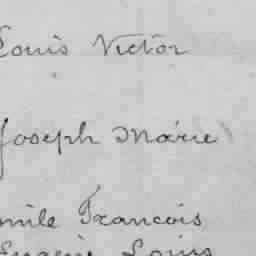 Louis Victor
Joseph Marie
Emile Francois
Eugène Louis